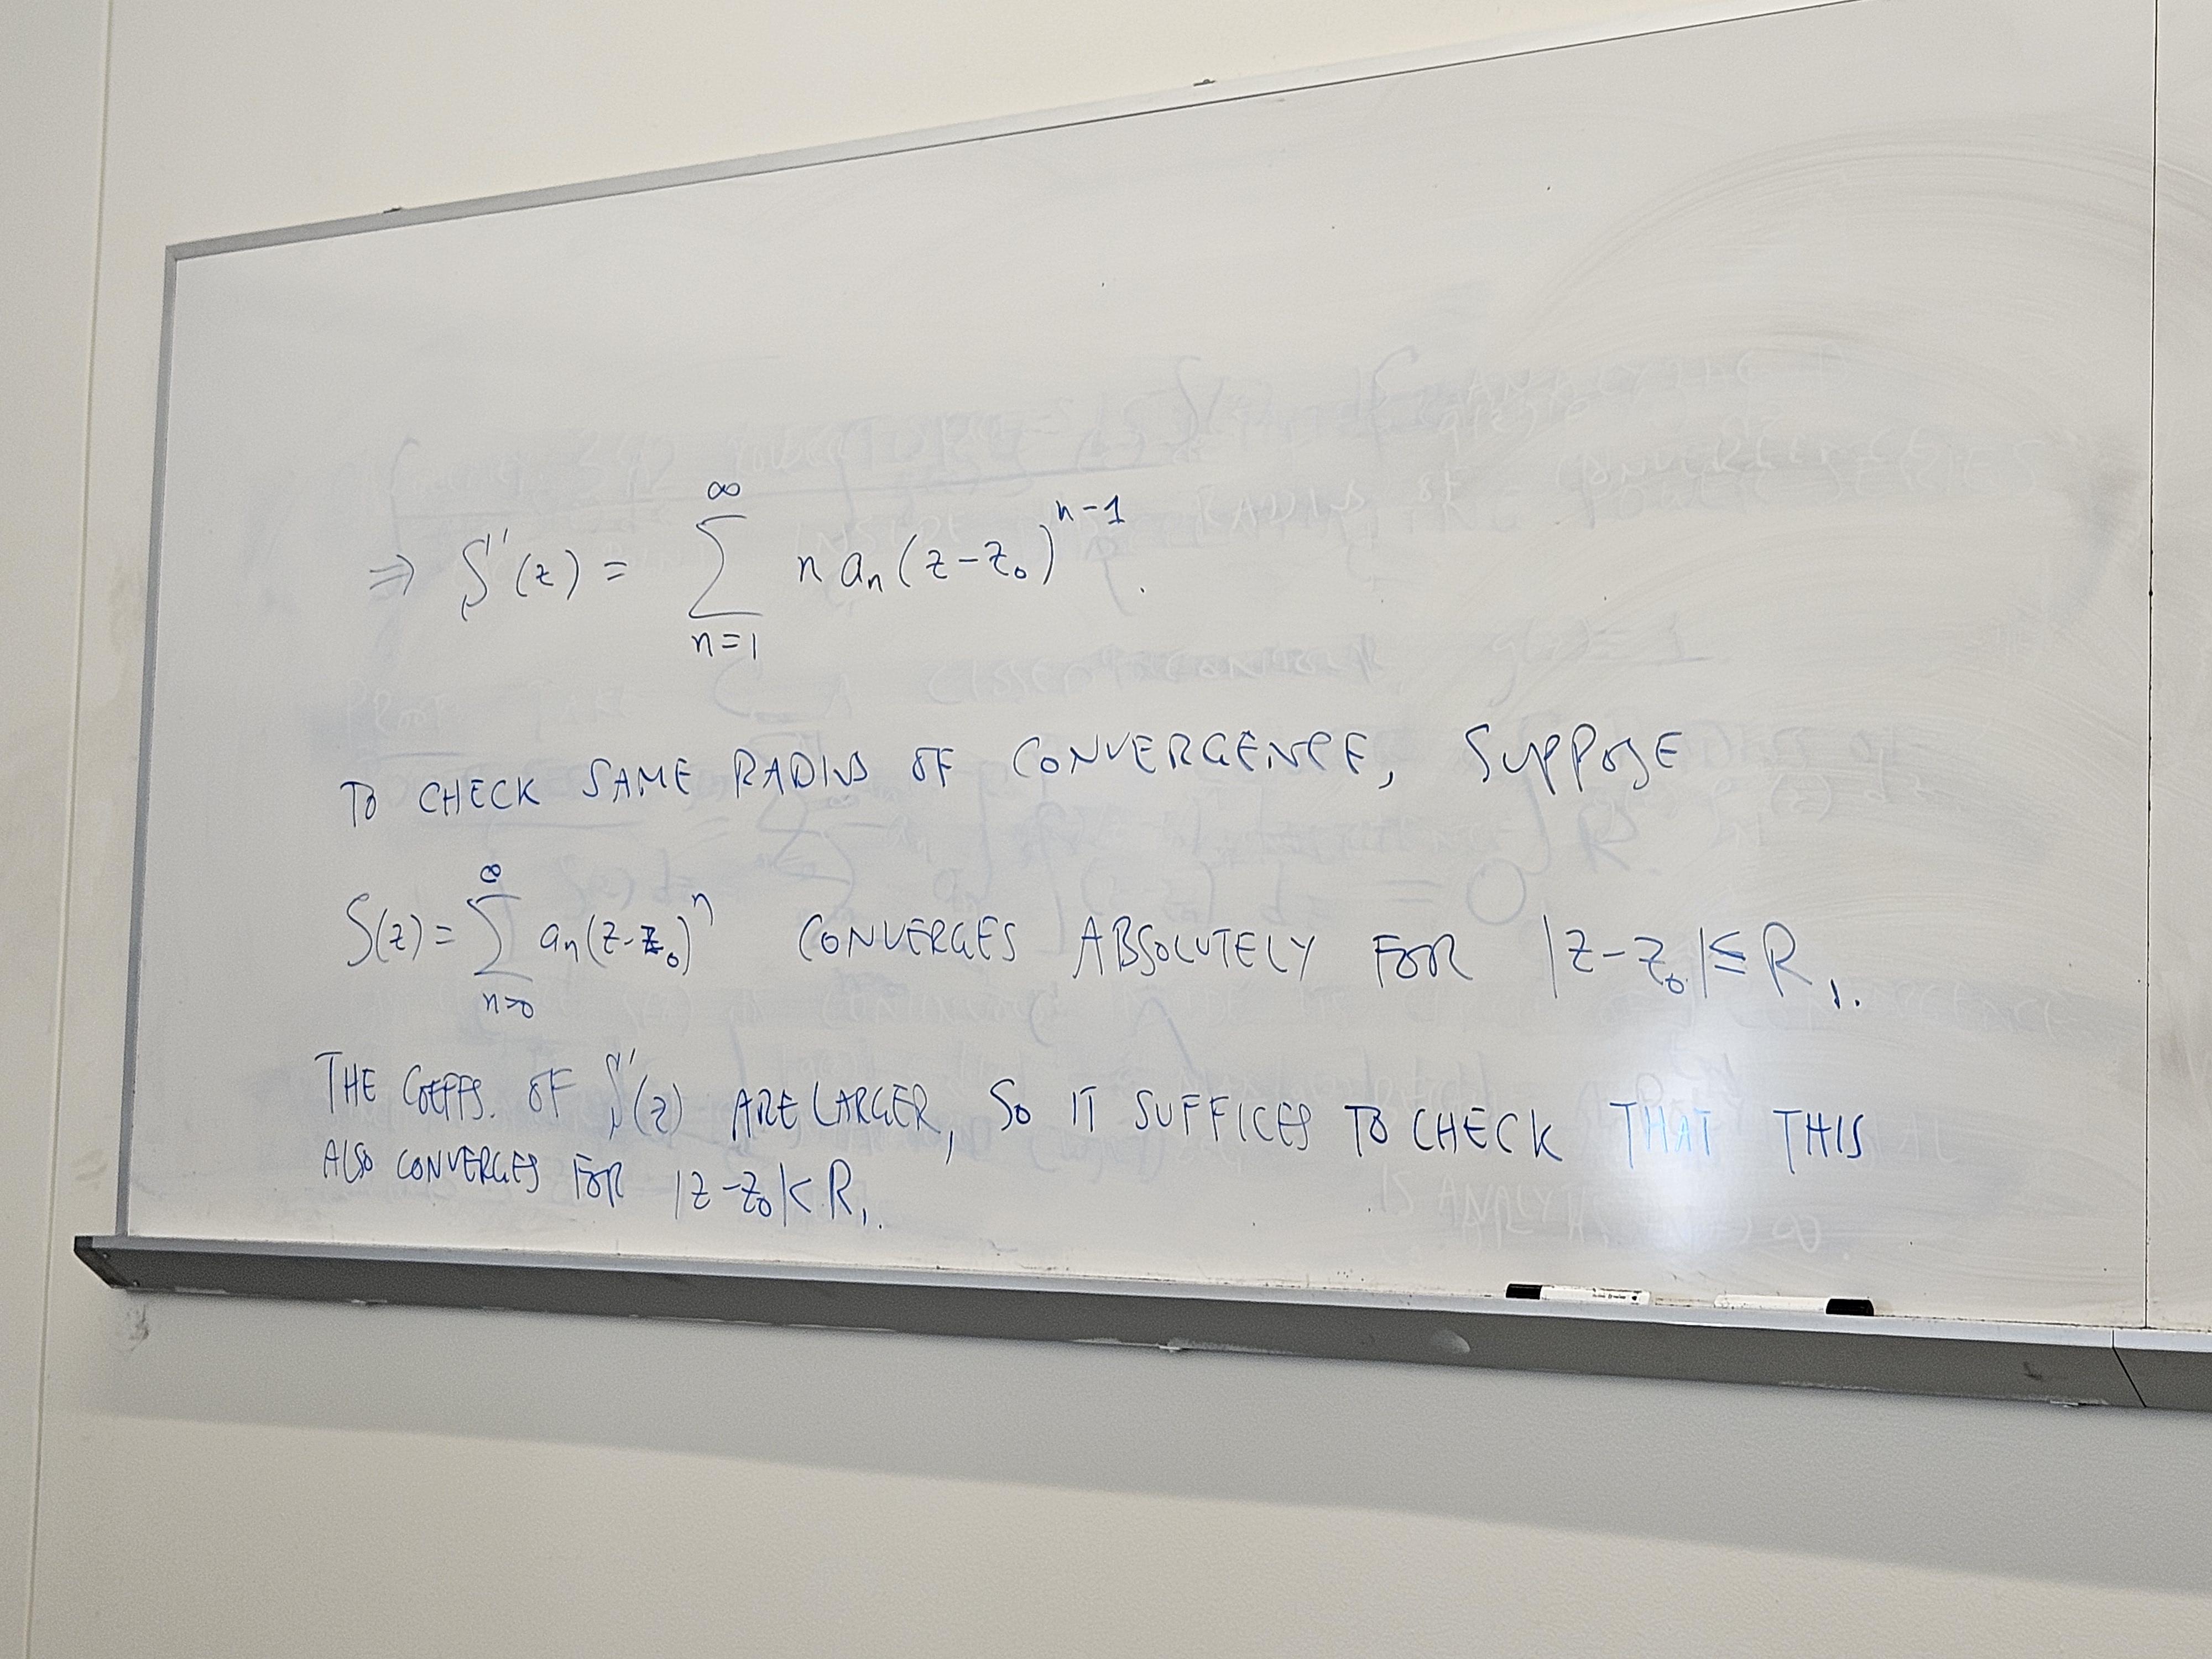 ⇒ S'(z) = ∞ ∑ n=1 n aₙ (z-z₀)ⁿ⁻¹.
TO CHECK SAME RADIUS OF CONVERGENCE, SUPPOSE
S(z) = ∞ ∑ n=0 aₙ(z-z₀)ⁿ CONVERGES ABSOLUTELY FOR |z-z₀| ≤ R₁.
THE COEFFS. OF S'(z) ARE LARGER, SO IT SUFFICES TO CHECK THAT THIS
ALSO CONVERGES FOR |z-z₀| < R₁.